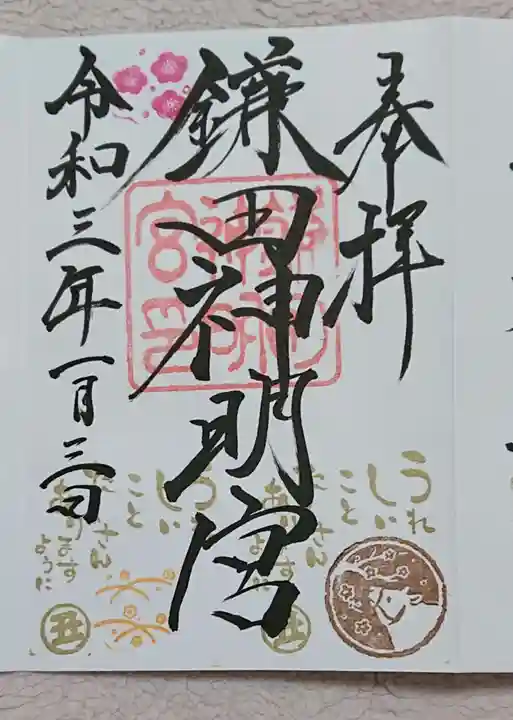 奉拝
鎌田神明宮
令和三年一月三日
うれ
しい
こと
たくさん
ありますように
丑